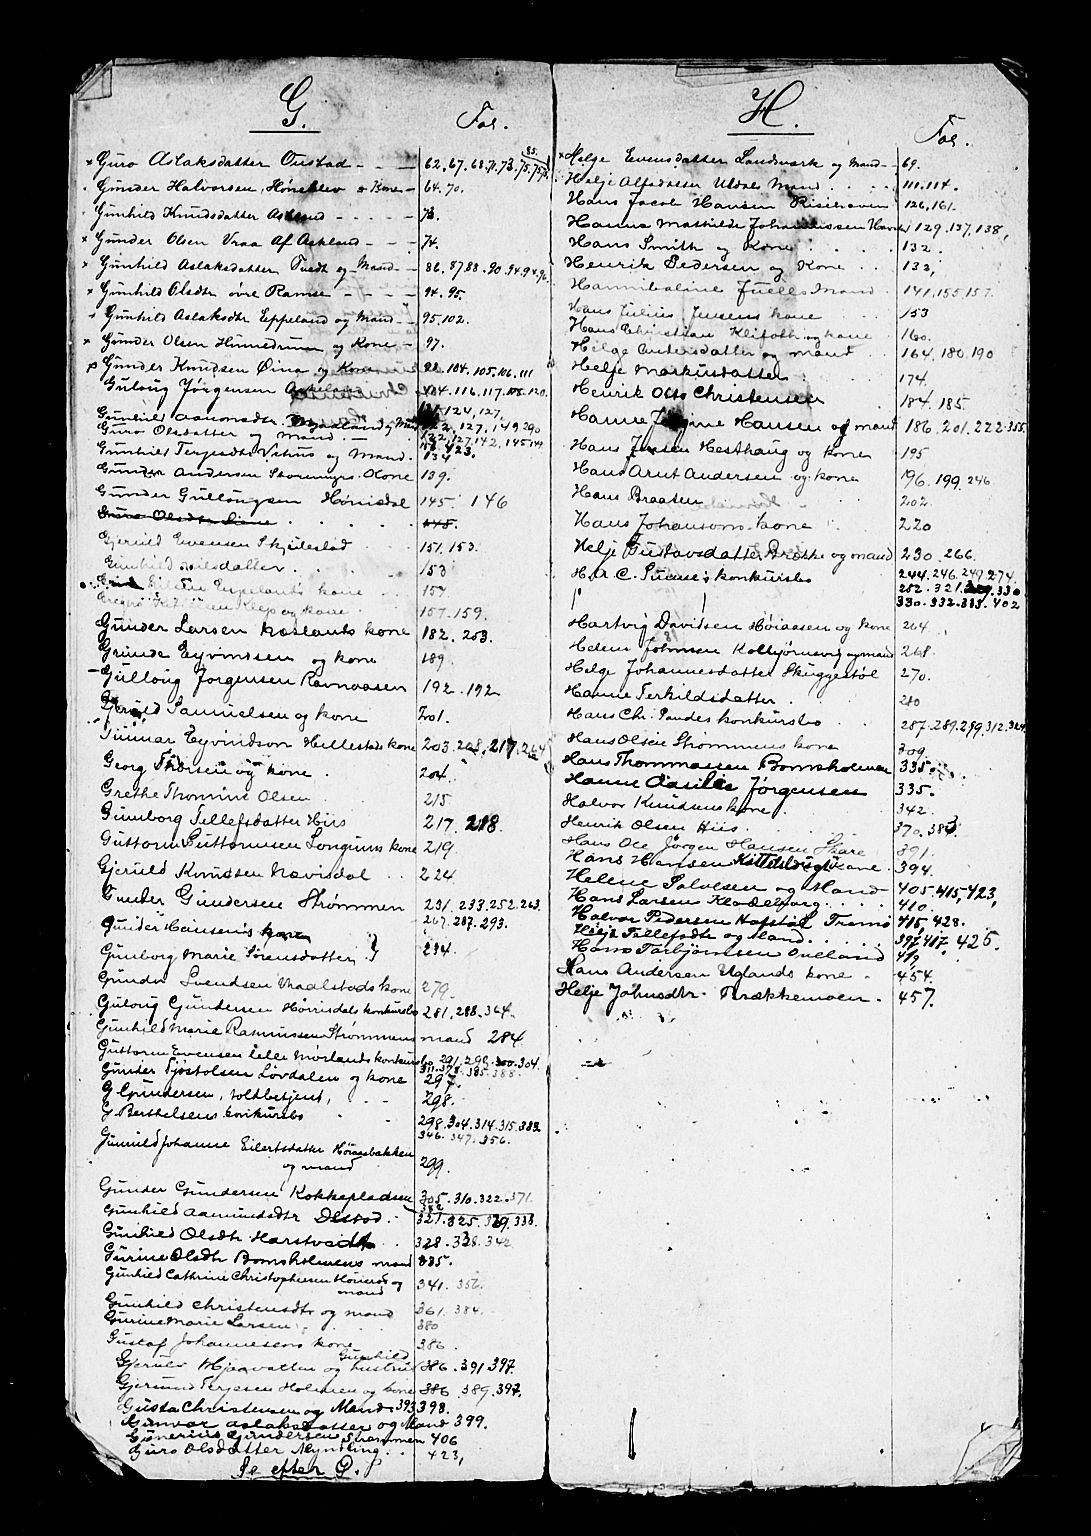 G.
Fol.
× Guro Aslaksdatter Onstad - - - 62, 67, 68, 71, 73, 75, 75, 85.
Gunder Halvorsen, & Kone - 64. 70.
Gunhild Knudsdatter Askland - - - - 73.
× Gunder Olsen Vraa Af Askland - - - 74.
× Gunhild Aslaksdatter Tvedt og Mand - - 86, 87, 88. 90, 94. 94. 96
× Gunhild Olsdtr øvre Ramse - - - - 94. 95.
Gunhild Aslaksdtr Eppeland og Mand - - 95, 102.
× Gunder Olsen og Kone - 97.
Gunder Knudsen og Kone 104. 105, 106. 111
Guloug Jørgensen 114. 116. 117. 120
121, 124, 127.
Gunhild Aamonsdtr. og Mand 122, 127, 149, 290
Guro Olsdatter og Mand. - 122, 127, 142, 145, 149
Gunhild Terjesdtr Vehus og Mand. 134 423.
Gunder Andersen Kone 139.
Gunder Gullougsen Hørrisdal 145. 146
Guro Olsdtr Liene . . . . 148.
Gjeruld Evensen Skjeilestad . . . 151, 153.
Gunhild Nilsdatter . . 153
Eppelands kone . . 154
Klep og kone . . 157. 159.
Gunder Larsen Kæslants kone 182. 253.
Grunde Eyvindsen og kone 189
Gulloug Jørgensen Ravnaasen 192. 192
Gjeruld Samuelsen og kone 201.
Gunnar Eyvindson Hellestads kone 203. 208. 217. 264
Georg Thorsen og kone . 204.
Grethe Thomine Olsen . 215
Gunborg Tellefsdatter Hiis . 217. 218.
Guttorm Guttormsen Longums kone 219
Gjeruld Knutsen Nævisdal . . 224
Gunder Gundersen Strømmen 231. 233. 252. 263.
267. 287. 293.
Gunder Hansens kone
Gunborg Marie Sørensdatter . } 234.
Gunder Svendsen Vraalstads kone 279.
Guloug Gundersen Hørrisdals konkursbo 281, 288. 344.
Gunhild Marie Rasmussen Strømmens mand 284
Guttorm Evensen lille Mørlands konkursbo 291. 298. 300. 304
311. 378. 385. 388.
Gunder Tjostolsen Løvdalen og kone 297.
G Gundersen, toldbetjent, . - 298.
G Berthelsens konkursbo 298. 304. 314. 315. 333
346. 347. 356.
Gunhild Johanne Eilertsdatter Høiaasbakken
og mand 299.
Gunder Gundersen Kokkepladsen 305. 310. 322. 371.
382
Gunhild Aamundsdtr Ølstad. - 321. 325. 329. 338.
Gunhild Olsdtr Harstveidt . . 328. 338. 342.
Gurine Olsdtr Bomsholmens mand 335.
Gunhild Cathrine Christophersen og
mand 341. 356.
Gunhild Christensdtr og mand 361. 384.
Gurine Marie Larsen . . 380
Gustaf Johannesens kone 386.
Gunhild
Gjerulv og hustru 386. 391 397.
Gjermund Terjesen Holmen og kone 386. 389. 397.
Gusta Christensen og Mand. 393 398.
Gunvor Aslaksdatter og Mand 399.
Gunerius Gundersen Strømmen 406
Guro Olsdatter Myntling . . 423,
Se efter P.
H.
Fol.
× Helge Evensdatter Landsværk og Mand - 69.
Helje Alfsdatter Uldals Mand . . . . 111. 114.
Hans Jacob Hansen Risehaven 126, 161.
Hanna Mathilde Johannissen 129. 137, 138,
Hans Smith og Kone . . 132.
Henrik Pedersen og Kone . . 132,
Hannibaline Juells Mand . 141, 155, 157.
Hans Julius Jensens kone 153
Hans Christian Klitoth og kone . 160.
Helge Andersdatter og mand . 164, 180, 190
Helje Markusdatter . 174
Henrik Otto Christensen 184. 185.
Hanne Jørgine Hansen og mand 186. 201. 222. 355
Hans Jensen Hesthaug og kone 195
Hans Arnt Andersen og kone 196. 199. 246
Hans Braaten . 202
Hans Johansons kone . 220
Helje Gustavsdatter Bræthe og mand 230. 266.
H. C. konkursbo 244. 246. 249. 274.
282. 321. 330
330. 332. 383. 402
Hartvig Davidsen Høiaasen og kone 264
Helene Johnsen Kolbjørnsvig og mand 268.
Helge Johannesdatter Skuggestøl 270.
Hanne Terkildsdatter . 280
Hans Chr. Sundes konkursbo 287. 289. 299. 312. 324
Hans Olsen Strømmens kone 309
Hans Thommassen Bomsholmen 335.
Hanne Oasilie Jørgensen 335.
Halvor Knudsens kone . 342
Henrik Olsen Hiis . . . 370. 383
Hans Ole Jørgen Hansen Skare 391.
Hans Hansen Kittelsbugt kone . 394.
Helene Salvesen og Mand 405 415, 423,
Hans Larsen Klodeborg . . . . 410.
Halvor Pedersen Hofstøl Tromø 415, 428.
Helje Tellefsdtr og Mand . . . . . 397 417. 425.
Hans Torbjørnsen Øveland 419
Hans Andersen Uglands kone . 454.
Helje Johnsdtr. Trækkemoen . 457.